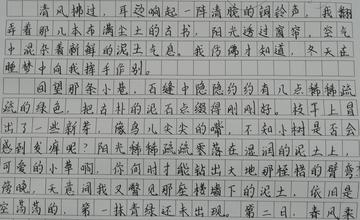 清风拂过，耳边响起一阵清脆的铜铃声，我翻
弄着那几本布满尘土的古书，阳光透过窗帘，空气
中混杂着新鲜的泥土气息，我仿佛才知道，冬天在
睡梦中向我挥手作别。
回望那条小巷，石缝中隐隐约约有几点稀稀疏
疏的绿色，把古朴的泥石点缀得刚刚好。枝子上冒
出了一些新芽，像鸟儿尖尖的嘴，不知小树是否会
感到发痒呢？阳光稀稀疏疏零落在湿润的泥土上，
可爱的小草啊，你何时才能钻出大地那怪楷的臂弯
傍晚，无意间我又瞥见那座楼墙下的泥土，依旧是
空荡荡的，第一抹青绿还未出现。第二日，春风来